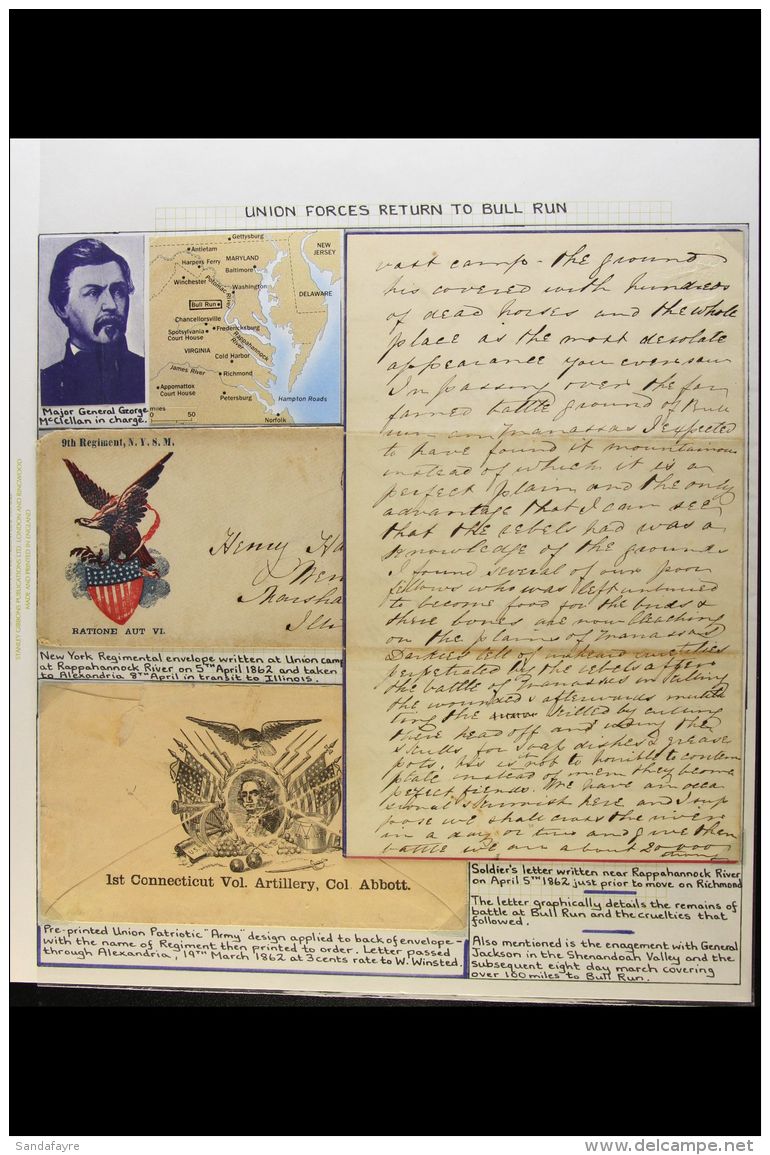 UNION FORCES RETURN TO BULL RUN
Major General George
McClellan in charge.
Gettysburg
NEW
JERSEY
Antietam
Harpers Ferry
MARYLAND
Baltimore
Winchester
Potomac River
Washington
DELAWARE
Bull Run
Chancellorsville
Spotsylvania
Court House
Fredericksburg
Rappahannock
River
VIRGINIA
Cold Harbor
James River
Richmond
Appomattox
Court House
Petersburg
Hampton Roads
miles
0 50
Norfolk
9th Regiment, N.Y.S.M.
Henry
Marsha
RATIONE AUT VI.
New York Regimental envelope written at Union camp
at Rappahannock River on 5TH April 1862 and taken
to Alexandria 8TH April in transit to Illinois.
1st Connecticut Vol. Artillery, Col. Abbott.
Pre-printed Union Patriotic "Army" design applied to back of envelope -
with the name of Regiment then printed to order. Letter passed
through Alexandria, 19TH March 1862 at 3cents rate to W. Winsted.
vast camp - the ground
his covered with hundreds
of dead horses and the whole
place as the most desolate
appearance you ever saw
In passing over the far
famed battle ground of Bull
run an Manassas I expected
to have found it mountainous
instead of which it is a
perfect plain and the only
advantage that I can see
that the rebels had was a
knowledge of the grounds
I found several of our poor
fellows who was left unburied
to become food for the birds &
there bones are now bleaching
on the plains of Manassas
Darkies tell of unheard cruelties
perpetrated by the rebels after
the battle of Manassas in killing
the wounded & afterwards mutila
ting the killed by cutting
there head off and using the
skulls for soap dishes & grease
pots. his is not to horrible to contem
plate instead of men they become
perfect fiends. We have an occa
sional skirmish here and I sup
pose we shall cross the river
in a day or two and give them
battle we are about 20,000
Soldier's letter written near Rappahannock River
on April 5TH 1862 just prior to move on Richmond
The letter graphically details the remains of
battle at Bull Run and the cruelties that
followed.
Also mentioned is the enagement with General
Jackson in the Shenandoah Valley and the
subsequent eight day march covering
over 100 miles to Bull Run.
STANLEY GIBBONS PUBLICATIONS LTD. LONDON AND RINGWOOD
MADE AND PRINTED IN ENGLAND
Sandafayre
delcampe.net